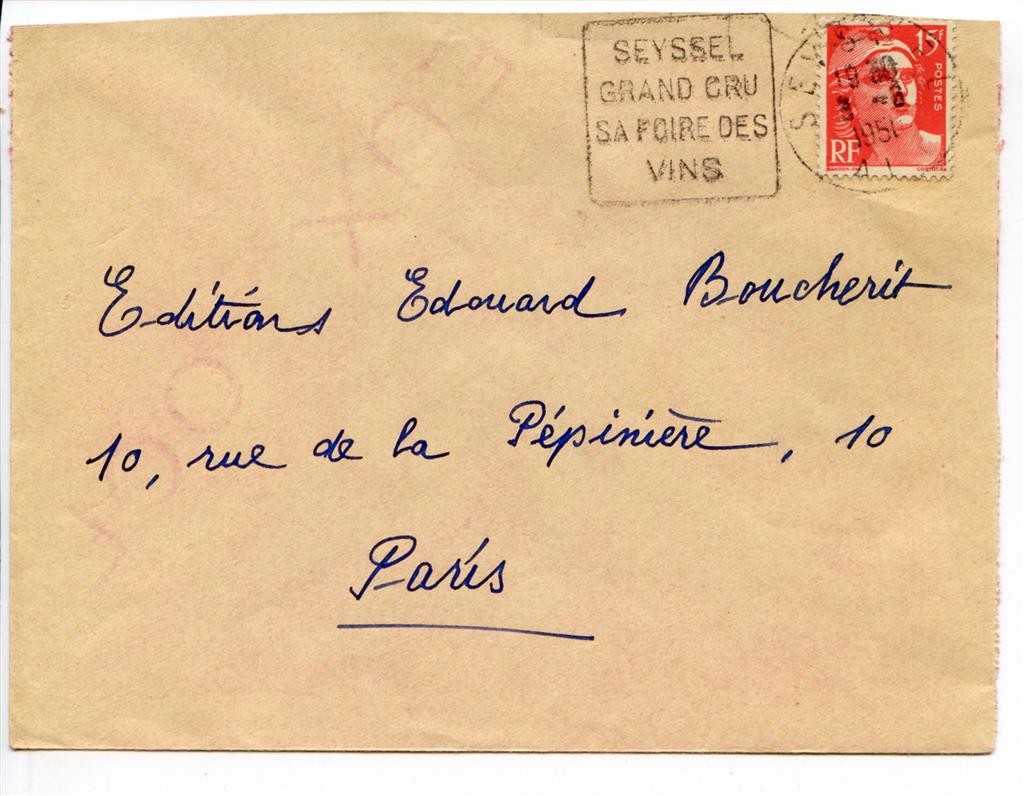 SEYSSEL
GRAND CRU
SA FOIRE DES
VINS
15F
POSTES
RF
1951
Editions Edouard Boucherit
10, rue de la Pépinière, 10
Paris